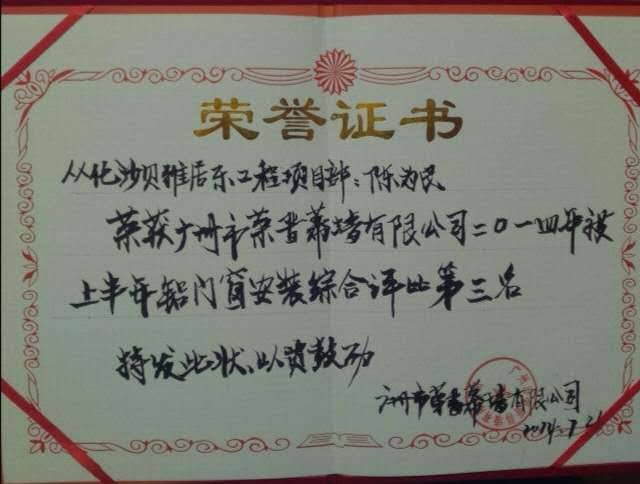 荣誉证书
从化沙贝雅居乐工程项目部：陈为民
荣获广州市荣晋幕墙有限公司二0一四年
上半年铝门窗安装综合评比第三名
特发此状，以资鼓励
广州市荣晋幕墙有限公司